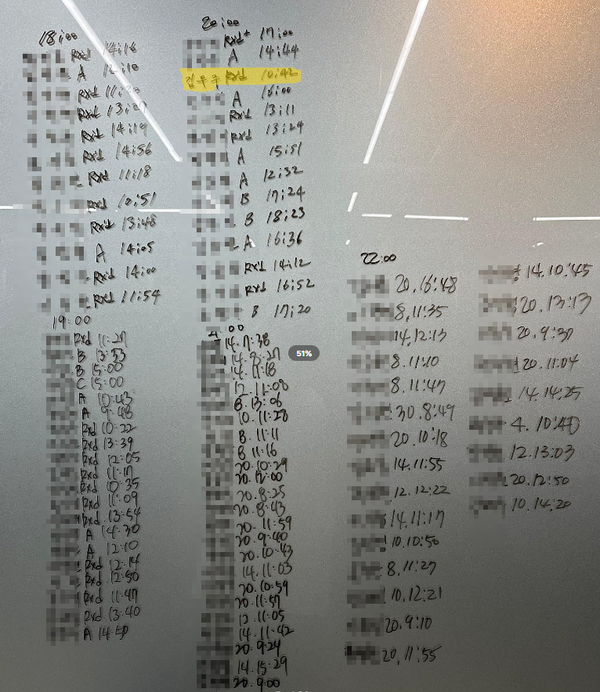 18:00
Rxd 14:16
A 12:10
Rxd
Rxd 13:27
Rxd 14:19
Rxd 14:56
Rxd 11:18
Rxd 10:51
Rxd 13:48
A 14:05
Rxd 14:00
Rxd 11:54
19:00
Rxd 11:27
B 13:53
B 15:00
C 15:00
A 10:43
A 9:48
Rxd 10:22
Rxd 13:39
Rxd 12:05
Rxd 11:17
Rxd 10:35
Rxd 11:09
Rxd 13:54
A 14:30
A 12:10
Rxd 12:14
Rxd 12:50
Rxd 11:47
Rxd 13:40
A 14:50
20:00
Rxd+ 17:00
A 14:44
Rxd 10:42
A 16:00
Rxd 13:11
Rxd 13:24
A 15:51
A 12:32
B 17:24
B 18:23
A 16:36
Rxd 14:12
Rxd 16:52
B 17:20
:00
14.7:38
14.8:27
14.11:18
12.11:00
8.13:06
10.11:28
8.11:11
8.11:16
20.10:29
20.12:00
20.8:25
20.8:43
20.11:59
20.9:40
20.10:43
14.11:03
20.10:59
20.11:57
12.11:05
14.11:42
20.9:24
14.15:29
20.9:00
51%
22:00
20.16:48
8.11:35
14.12:13
8.11:10
8.11:47
30.8:49
20.10:18
14.11:55
12.12:22
14.11:17
10.10:50
8.11:27
10.12:21
20.9:10
20.11:55
14.10:45
20.13:13
20.9:30
20.11:04
14.14:25
4.10:40
12.13:03
20.12:50
10.14:20